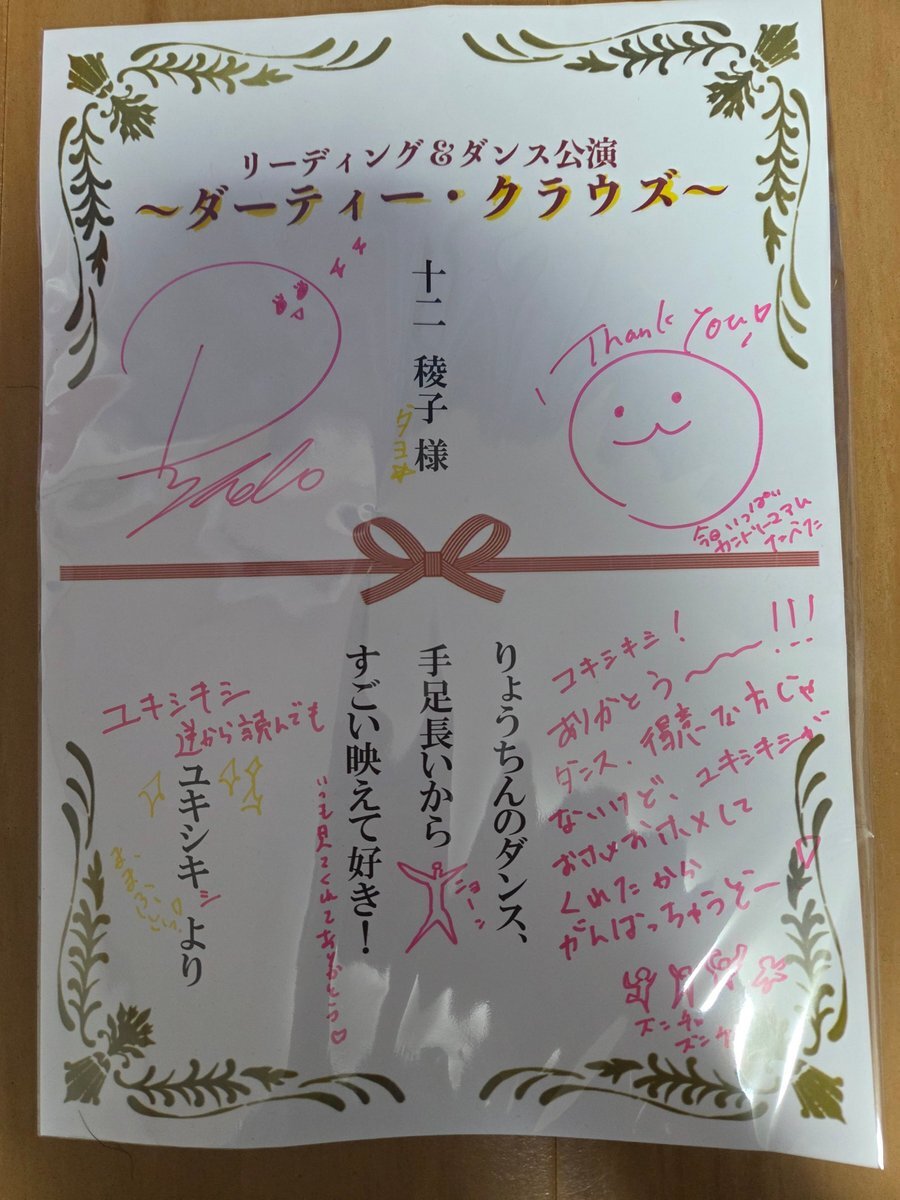 リーディング&ダンス公演
〜ダーティー・クラウズ〜
十二 稜子 様
ダヨ
Thank You♡
今日いっぱい
カントリーマアム
食べた
りょうちんのダンス、
手足長いから
すごい映えて好き!
ユキシキシより
ニョーン
いつも見てくれてありがとう♡
ユキシキシ
逆から読んでも
ユキシキシ!
ありがとう〜〜!!!
ダンス、得意な方じゃ
ないけど、ユキシキシが
おホメおホメして
くれたから
がんばっちゃうぞー♡
ズンチャ
ズンチャ